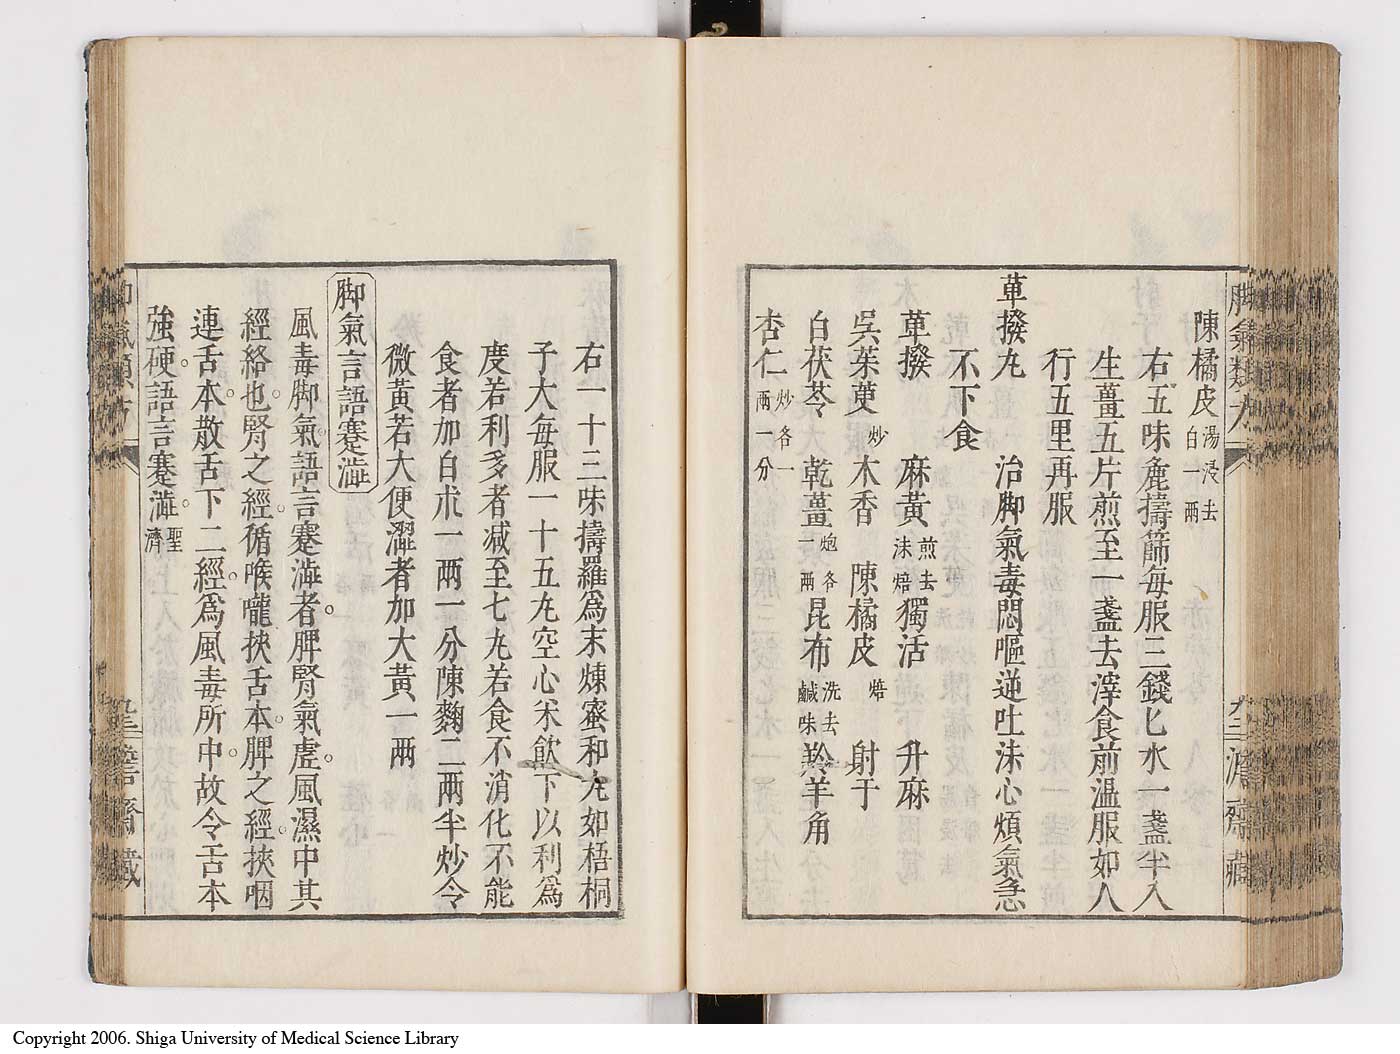 陳橘皮湯浸去白一兩
右五味麁擣篩每服三錢匕水一盞半入
生薑五片煎至一盞去滓食前溫服如人
行五里再服
蓽撥丸　治脚氣毒悶嘔逆吐沫心煩氣急
不下食
蓽撥　麻黃煎去沫焙獨活　升麻
吳茱萸炒木香　陳橘皮焙　射干
白茯苓　乾薑炮各一兩昆布洗去鹹味羚羊角
杏仁炒各一兩一分
右一十三味擣羅爲末煉蜜和丸如梧桐
子大每服一十五丸空心米飲下以利爲
度若利多者減至七丸若食不消化不能
食者加白朮一兩一分陳麴二兩半炒令
微黃若大便澀者加大黃一兩
脚氣言語蹇澁
風毒脚氣語言蹇澁者脾腎氣虛風濕中其
經絡也腎之經循喉嚨挾舌本脾之經挾咽
連舌本散舌下二經爲風毒所中故令舌本
強硬語言蹇澁聖濟
Copyright 2006. Shiga University of Medical Science Library